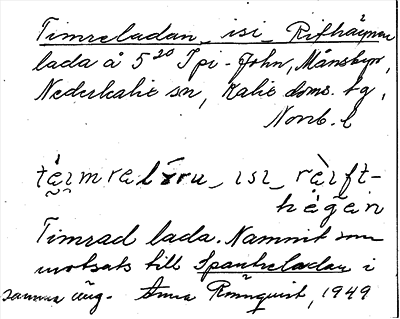 Timreladan isi Rifthägnen
lada å 5²⁰ Ipi-John, Månsbyn,
Nederkalix sn, Kalix doms. tg,
Norrb. l
isi
Timrad lada. Nämnd som
motsats till Spantreladan i
samma äng. Anna Rönnquist, 1949